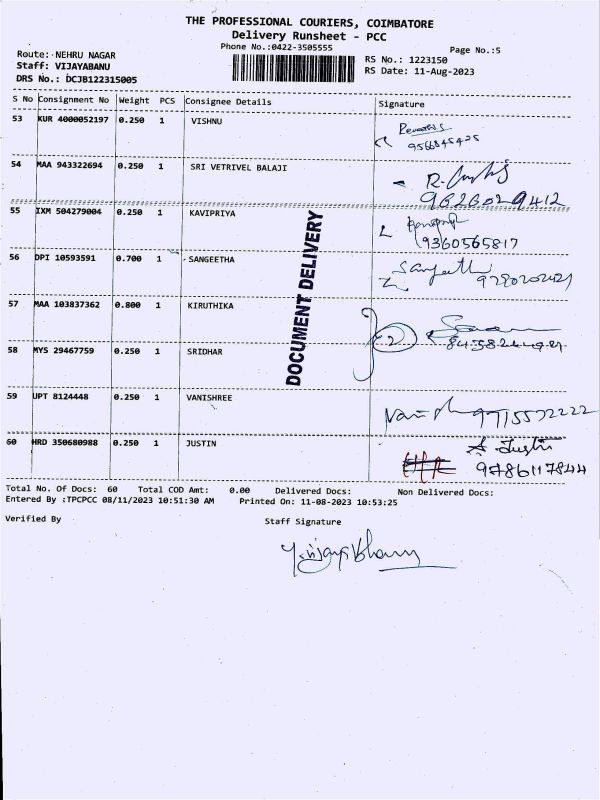 THE PROFESSIONAL COURIERS, COIMBATORE
Delivery Runsheet - PCC
Phone No.:0422-3505555
Page No.:5
Route: NEHRU NAGAR
Staff: VIJAYABANU
DRS No.: DCJB122315005
RS No.: 1223150
RS Date: 11-Aug-2023
S No Consignment No Weight PCS Consignee Details Signature
53 KUR 4000052197 0.250 1 VISHNU
54 MAA 943322694 0.250 1 SRI VETRIVEL BALAJI
9626029412
55 IXM 504279004 0.250 1 KAVIPRIYA
9360565817
56 DPI 10593591 0.700 1 SANGEETHA
Sangeetha
57 MAA 103837362 0.800 1 KIRUTHIKA
58 MYS 29467759 0.250 1 SRIDHAR
59 UPT 8124448 0.250 1 VANISHREE
60 HRD 350680988 0.250 1 JUSTIN
A Justin
9786117844
DOCUMENT DELIVERY
Total No. Of Docs: 60 Total COD Amt: 0.00 Delivered Docs: Non Delivered Docs:
Entered By :TPCPCC 08/11/2023 10:51:30 AM Printed On: 11-08-2023 10:53:25
Verified By Staff Signature